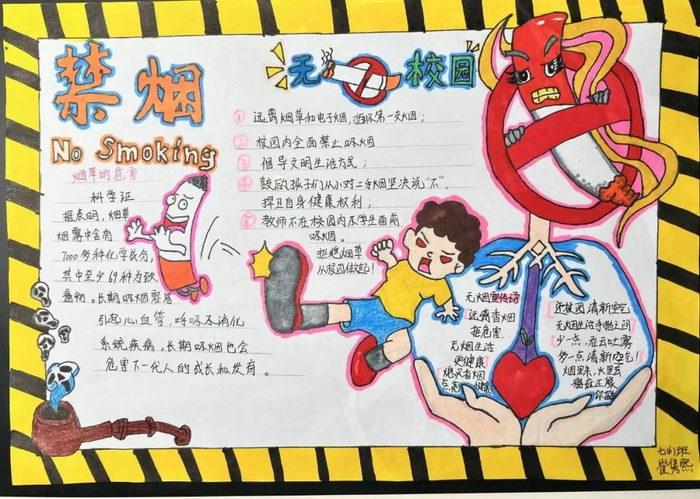 禁烟
No Smoking
烟草的危害
科学证
据表明，烟草
烟雾中含有
7000多种化学成分，
其中至少69种为致
癌物。长期吸烟容易
引起心血管，呼吸不消化
系统疾病，长期吸烟也会
危害下一代人的成长和发育。
无校园
1 远离烟草和电子烟，拒吸第一支烟；
2 校园内全面禁止吸烟
3 倡导文明生活方式；
4 鼓励孩子们从小对二手烟坚决说“不”，
捍卫自身健康权利；
5 教师不在校园内及学生面前
吸烟。
拒绝烟草
从校园做起！
无烟宣传语
远离香烟
拒危害，
无烟生活
更健康
熄灭香烟
点亮健康
还校园清新空气
无烟生活手牵之间
少一点，吞云吐雾
多一点清新空气！
烟里来，火里去
癌症正在
七(1)班